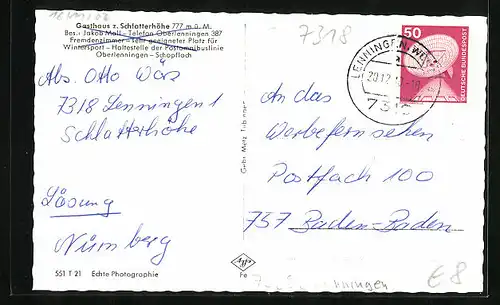 Gasthaus z. Schlatterhöhe 777 m ü. M.
Bes.: Jakob Moll - Telefon Oberlenningen 387
Fremdenzimmer - sehr geeigneter Platz für
Wintersport - Haltestelle der Postomnibuslinie
Oberlenningen - Schopfloch
Abs. Otto Wörz
7318 Lenningen 1
Schlatterhöhe
Lösung
Nürnberg
551 T 21 Echte Photographie
Gebr. Metz Tübingen
7318
LENNINGEN, WÜRTT
a
7318
50
DEUTSCHE BUNDESPOST
An das
Werbefernsehen
Postfach 100
757 Baden-Baden
Agfa
Fe
€ 8